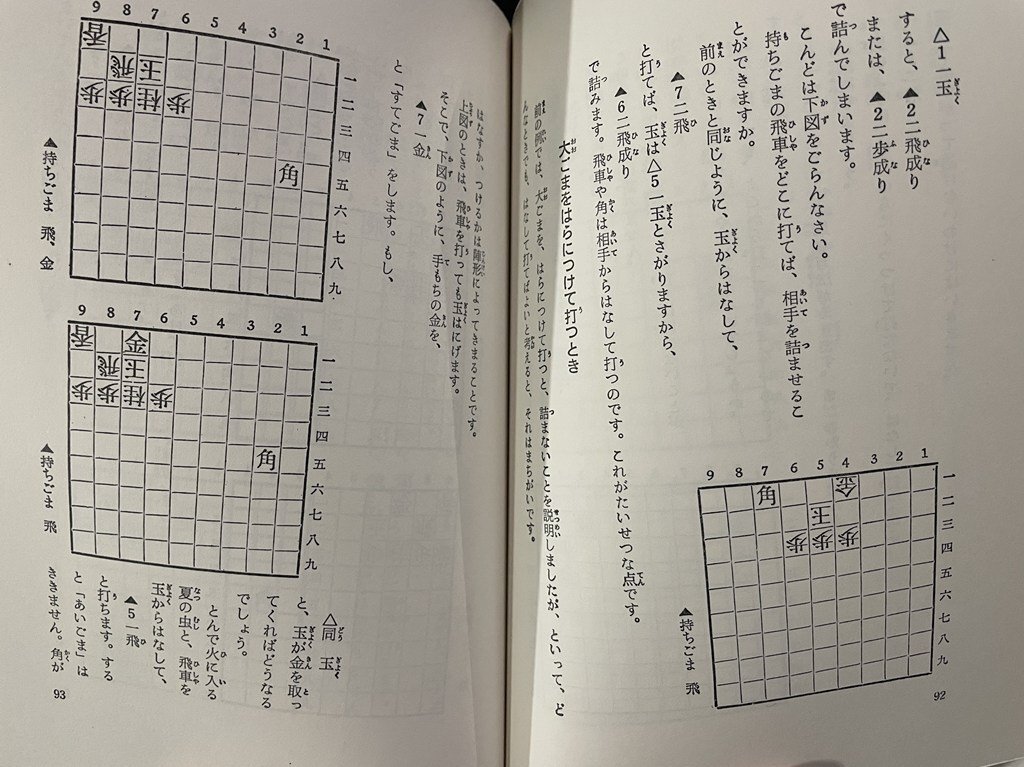 △1一玉
すると、▲2二飛成り
または、▲2二歩成り
で詰んでしまいます。
こんどは下図をごらんなさい。
持ちごまの飛車をどこに打てば、相手を詰ませるこ
とができますか。
前のときと同じように、玉からはなして、
▲7二飛
と打てば、玉は△5一玉とさがりますから、
▲6二飛成り
で詰みます。飛車や角は相手からはなして打つのです。これがたいせつな点です。
大ごまをはらにつけて打つとき
前の例では、大ごまを、はらにつけて打つと、詰まないことを説明しましたが、といって、ど
んなときでも、はなして打てばよいと考えると、それはまちがいです。
9 8 7 6 5 4 3 2 1
一
二
三
四
五
六
七
八
九
角 金
玉
歩 歩 歩
▲持ちごま 飛
92
はなすか、つけるかは陣形によってきまることです。
上図のときは、飛車を打っても玉はにげます。
そこで、下図のように、手もちの金を、
▲7一金
と「すてごま」をします。もし、
9 8 7 6 5 4 3 2 1
一
二
三
四
五
六
七
八
九
香
飛 王
歩 歩 桂 歩
角
▲持ちごま 飛、金
9 8 7 6 5 4 3 2 1
一
二
三
四
五
六
七
八
九
香 金
飛 王
歩 歩 桂 歩
角
▲持ちごま 飛
△同 玉
と、玉が金を取っ
てくればどうなる
でしょう。
とんで火に入る
夏の虫と、飛車を
玉からはなして、
▲5一飛
と打ちます。する
と「あいごま」は
ききません。角が
93